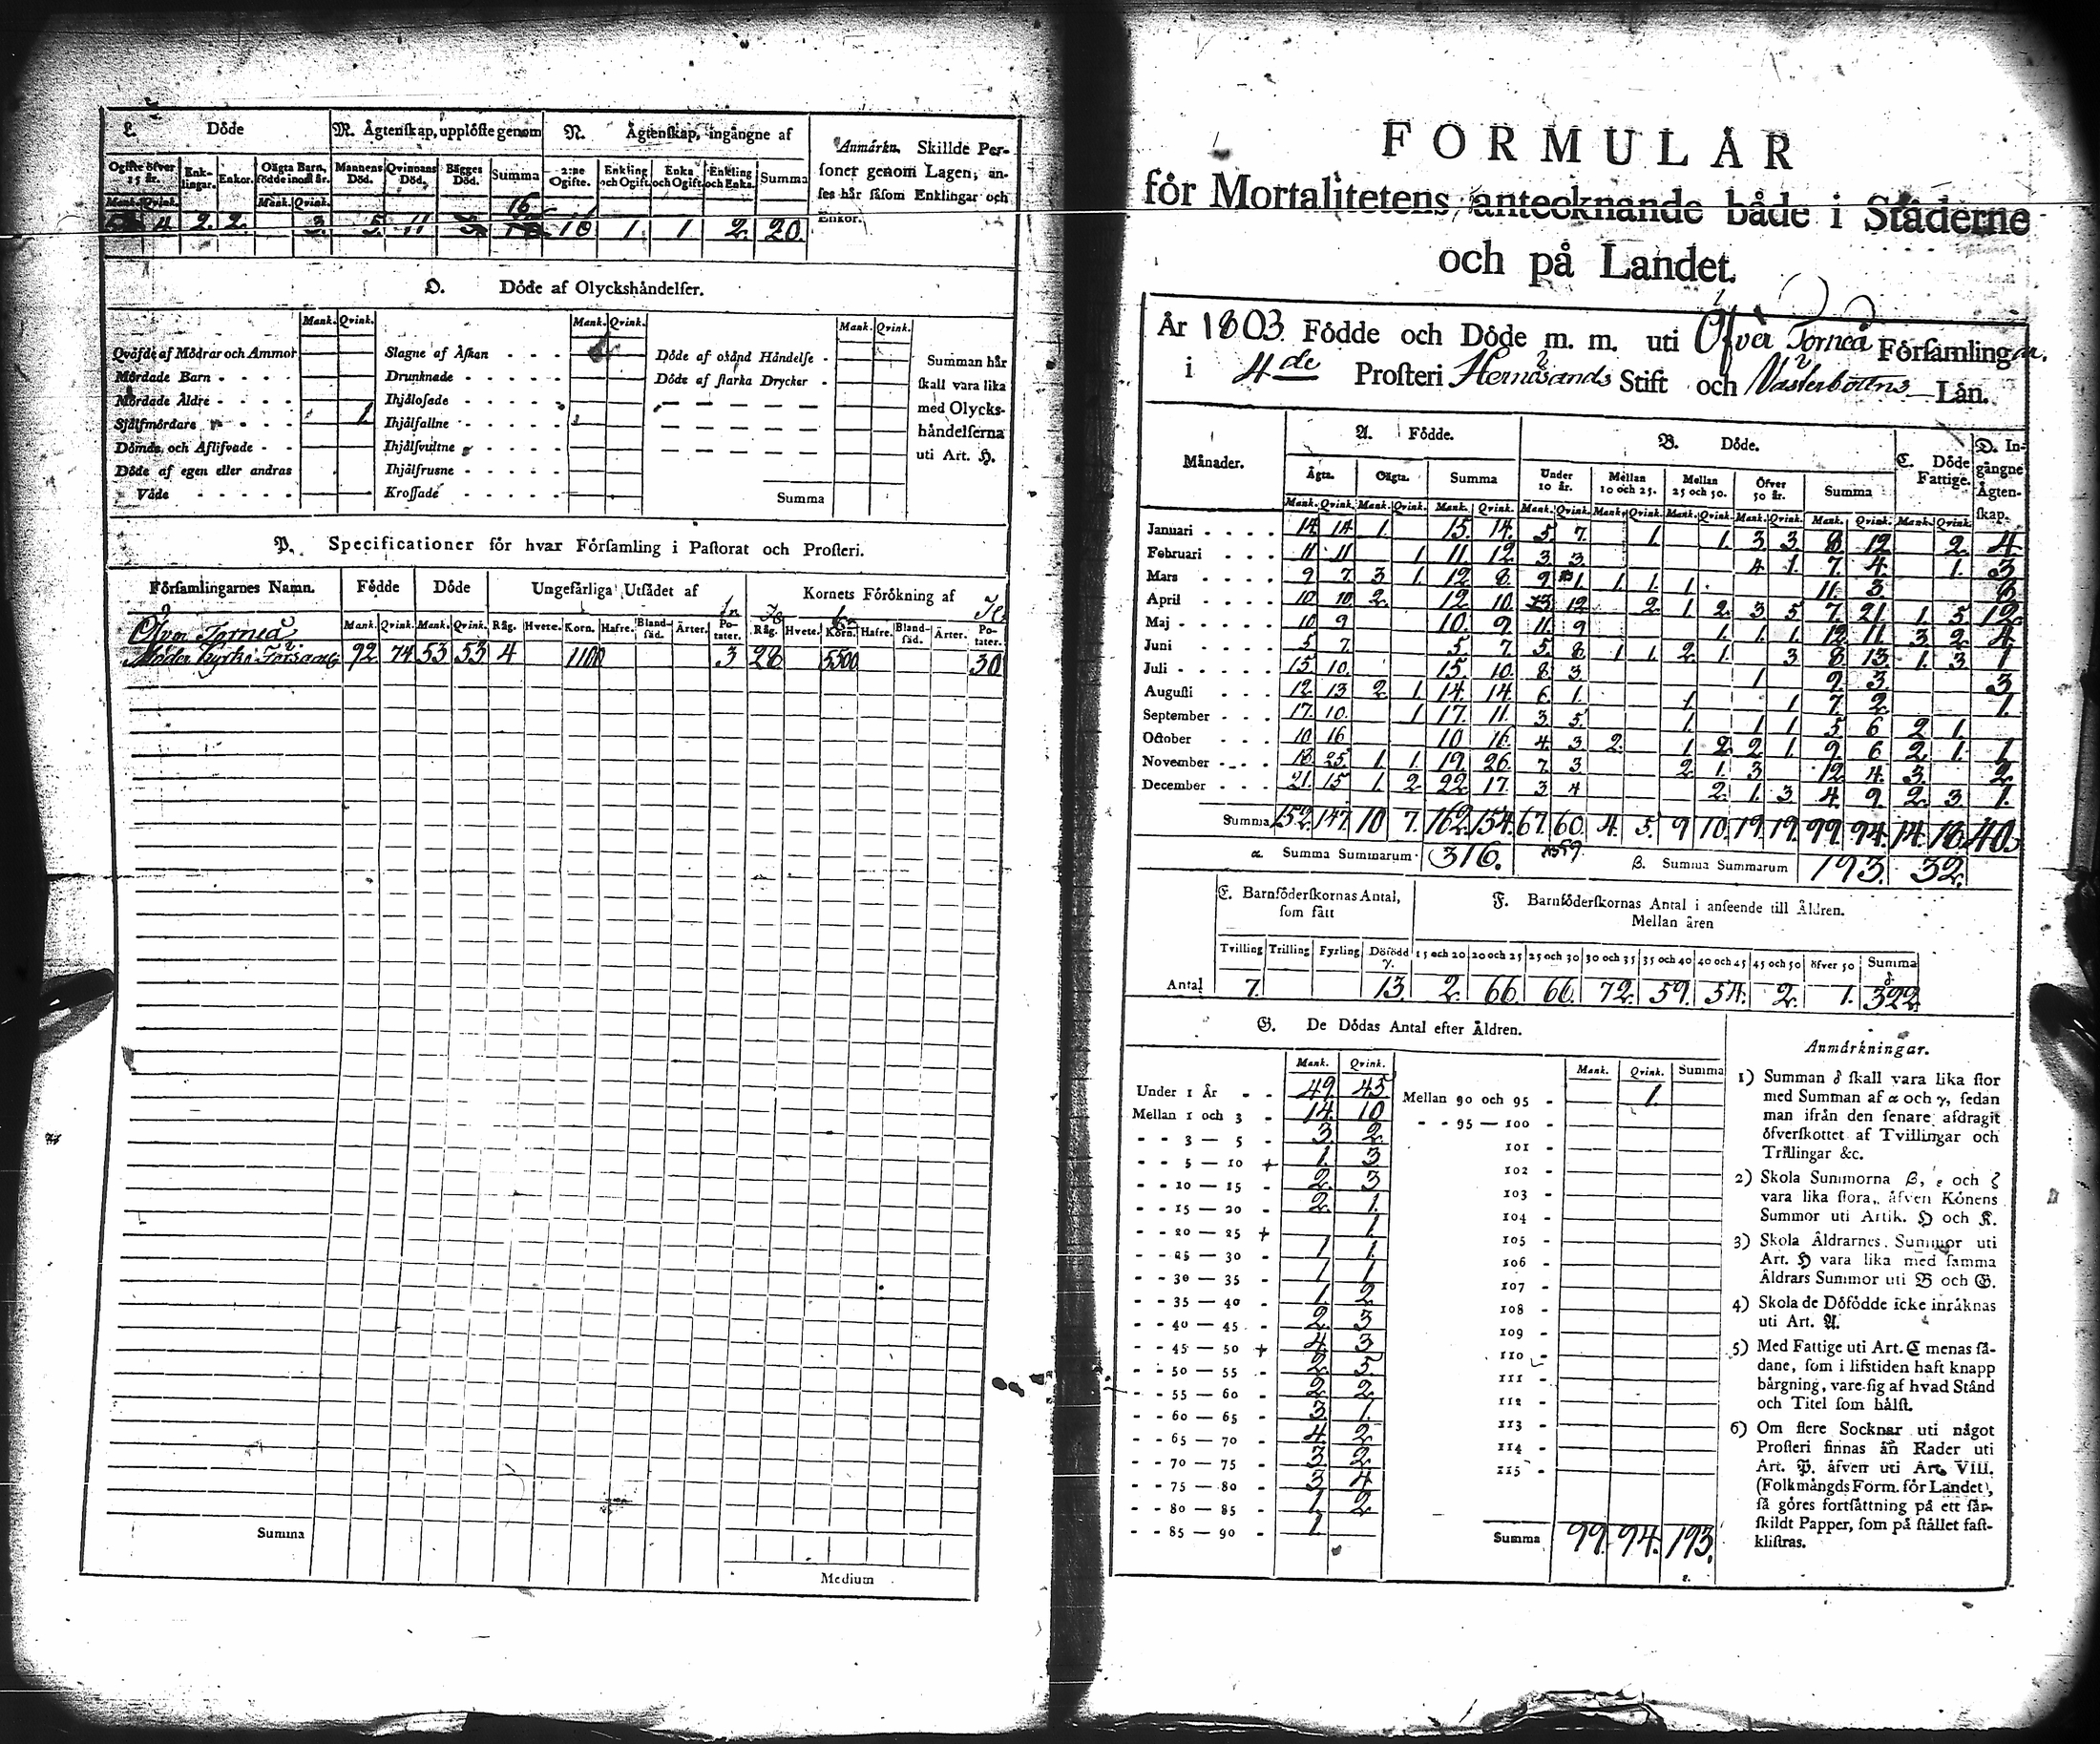 L. Döde
M. Ägtenskap, upplöste genom
N. Ägtenskap, ingångne af
Anmärkn. Skillde Per-
soner genom Lagen, an-
ses här såsom Enklingar och
Enkor.
Ogifte öfver 15 år. Enk- lingar. Enkor. Oägta Barn, födde inom år. Mannens Död. Qvinnans Död. Bägges Död. Summa 2:ne Ogifte. Enkling och Ogift. Enka och Ogift. Enkling och Enka. Summa
Mank. Qvink. Mank. Qvink.
16
4. 2. 2. 3. 5. 11 16 1. 1 2. 20.
O. Döde af Olyckshändelser.
Mank. Qvink. Mank. Qvink. Mank. Qvink.
Qväfde af Mödrar och Ammor
Mördade Barn
Mördade Äldre
Självmördare 1.
Dömde och Aflifvade
Döde af egen eller andras
Våde
Slagne af Åskan
Drunknade
Ihjälosade
Ihjälfallne
Ihjälsvultne
Ihjälfrusne
Krossade
Döde af okänd Händelse
Döde af starka Drycker
Summa
Summan här
skall vara lika
med Olycks-
händelserna
uti Art. H.
P. Specificationer för hvar Församling i Pastorat och Prosteri.
Församlingarnes Namn. Födde Döde Ungefärliga Utsädet af Kornets Förökning af
Mank. Qvink. Mank. Qvink. Råg. Hvete. Korn. Hafre. Bland- säd. Ärter. Po- tater. Råg. Hvete. Korn. Hafre. Bland- säd. Ärter. Po- tater.
Öfver Torneå
Moder Kyrko Församl: 92 74 53 53 4 1100 3 28 5500 30
Summa
Medium
FORMULÄR
för Mortalitetens antecknande både i Städerne
och på Landet.
År 1803 Födde och Döde m. m. uti Öfver Torneå Församlingar.
i 4de Prosteri Hernösands Stift och Västerbottns Län.
Månader. A. Födde. B. Döde. C. Döde Fattige. D. In- gångne Ägten- skap.
Ägta. Oägta. Summa Under 10 år. Mellan 10 och 25. Mellan 25 och 50. Öfver 50 år. Summa
Mank. Qvink. Mank. Qvink. Mank. Qvink. Mank. Qvink. Mank. Qvink. Mank. Qvink. Mank. Qvink. Mank. Qvink. Mank. Qvink.
Januari 14 14 1. 15. 14. 5 7. 1. 1. 3 3 8. 12 2. 4
Februari 11 11 1 11. 12 3 3 4 1. 7. 4 1. 3
Mars 9 7. 3 1. 12 8. 9 1. 1. 1. 1. 11. 3 8
April 10 10 2. 12 10. 3 12 2 1 2 3 5 7. 21. 1. 5 12
Maj 10 9 10. 9. 11. 9 1. 1. 1. 12 11 3. 2. 4.
Juni 5 7. 5. 7. 5 8. 1 1. 2. 1. 3 8 13. 1. 3 1
Juli 15. 10. 15. 10. 8. 3. 1 9. 3 3
Augusti 12. 13 2 1. 14. 14. 6. 1. 1. 1 7. 2. 1.
September 17. 10. 1 17. 11. 3. 5. 1. 1 1 5 6 2 1.
October 10 16 10 16. 4. 3 2. 1. 2. 2. 1. 9. 6 2. 1. 1
November 18 25. 1. 1. 19. 26. 7. 3 2. 1. 3 12 4. 3. 2.
December 21. 15 1. 2 22 17. 3 4 2. 1. 3. 4. 9. 2. 3. 1.
Summa 152. 147. 10 7. 162. 154. 67. 60. 4. 5. 9 10. 19. 19. 99. 94. 14. 18. 40.
α. Summa Summarum 316. β. Summa Summarum 193. 32.
E. Barnföderskornas Antal, som fått
F. Barnföderskornas Antal i anseende till Åldren. Mellan åren
Tvilling Trilling Fyrling Dödfödd γ. 15 och 20 20 och 25 25 och 30 30 och 35 35 och 40 40 och 45 45 och 50 öfver 50 Summa δ
Antal 7. 13. 2. 66 66. 72. 59. 54. 2. 1. 322
G. De Dödas Antal efter Åldren.
Mank. Qvink. Mank. Qvink. Summa
Under 1 År 49. 45.
Mellan 1 och 3 14. 10
3 — 5 3. 2
5 — 10 + 1. 3
10 — 15 2. 3
15 — 20 2. 1.
20 — 25 + 1.
25 — 30 1 1.
30 — 35 1 1
35 — 40 1. 2
40 — 45 2. 3
45 — 50 + 4. 3
50 — 55 2. 5.
55 — 60 2 2.
60 — 65 3. 1.
65 — 70 4. 2
70 — 75 3 2
75 — 80 3 4
80 — 85 1. 2
85 — 90 1
Mellan 90 och 95 1.
95 — 100
101
102
103
104
105
106
107
108
109
110
111
112
113
114
115
Summa 99. 94. 193.
ε.
Anmärkningar.
1) Summan δ skall vara lika stor
med Summan af α och γ, sedan
man ifrån den senare afdragit
öfverskottet af Tvillingar och
Trillingar &c.
2) Skola Summorna β, ε och ζ
vara lika stora, äfven Könens
Summor uti Artik. H och K.
3) Skola Åldrarnes Summor uti
Art. H vara lika med samma
Åldrars Summor uti B och G.
4) Skola de Döfödde icke inräknas
uti Art. A.
5) Med Fattige uti Art. C menas så-
dane, som i lifstiden haft knapp
bärgning, vare sig af hvad Stånd
och Titel som hälst.
6) Om flere Socknar uti något
Prosteri finnas än Rader uti
Art. P. äfven uti Art. VIII.
(Folkmängds Form. för Landet),
så göres fortsättning på ett sär-
skildt Papper, som på stället fast-
klistras.